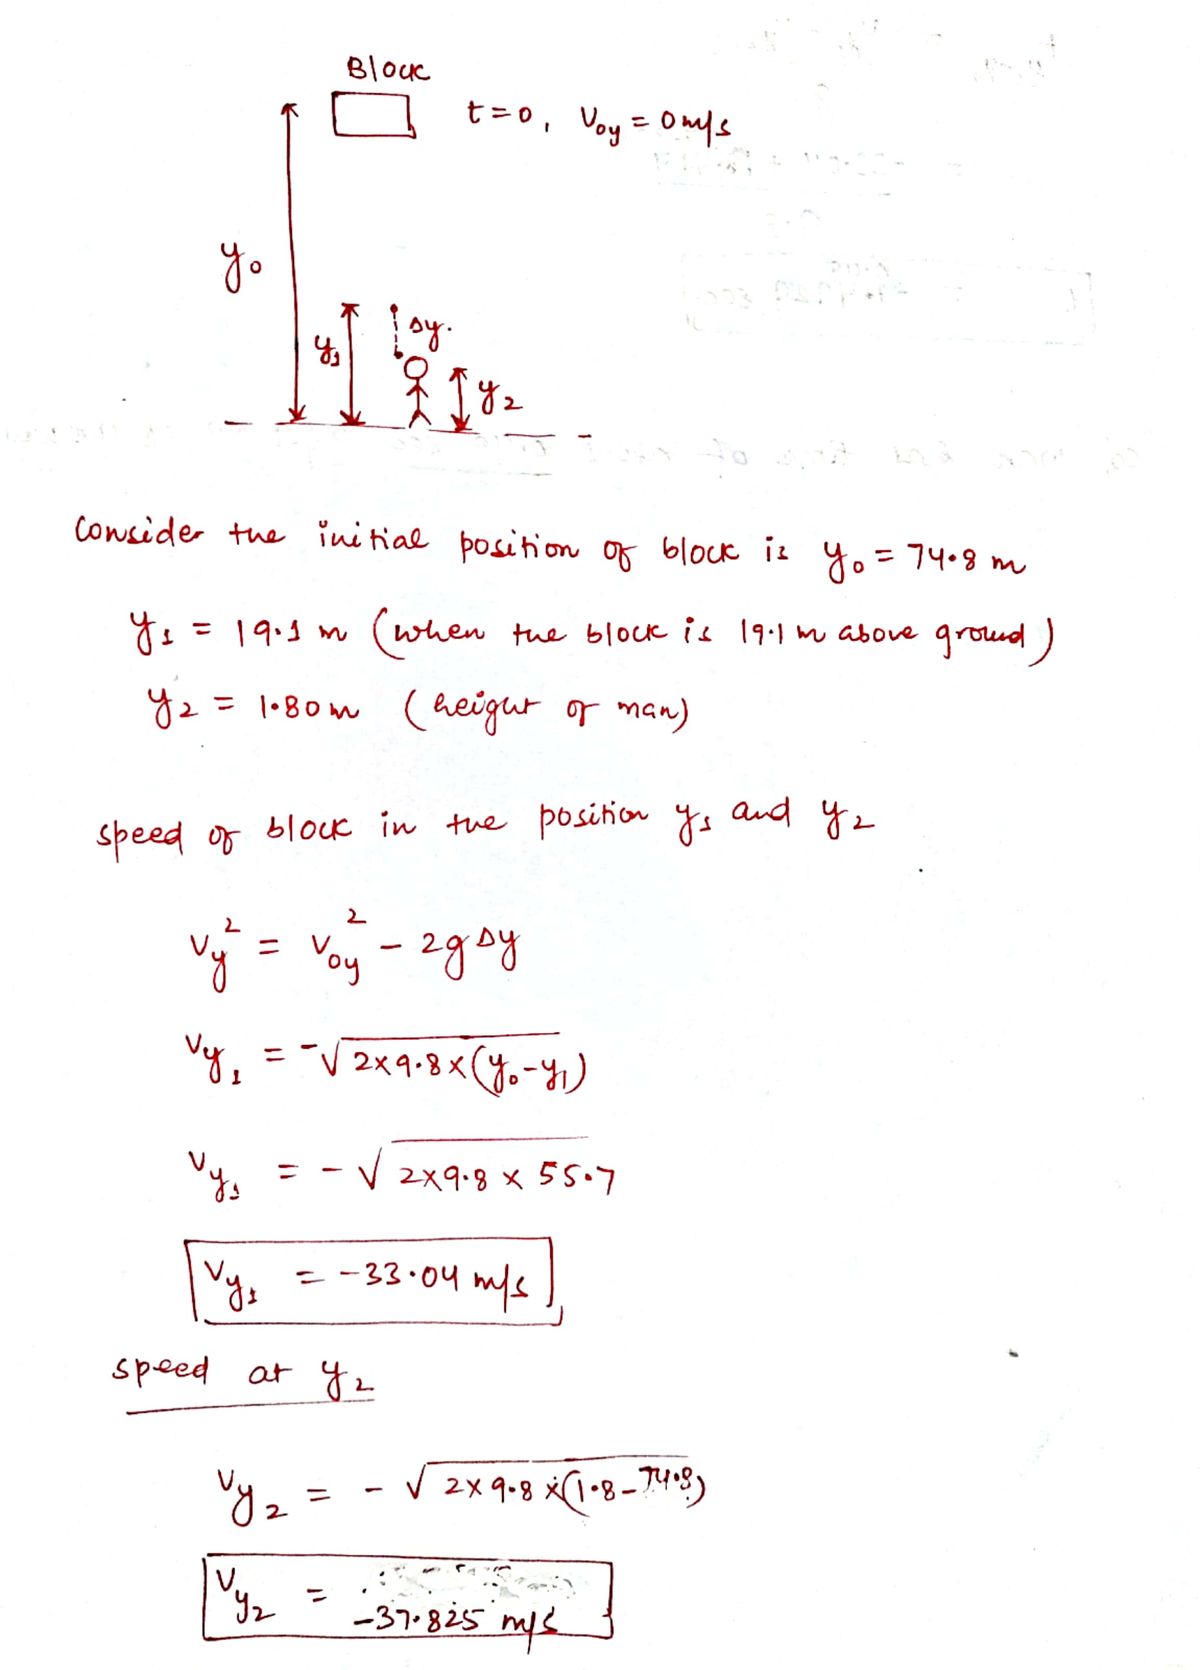 Block
t=0, Voy = 0 m/s
y0
y1
Δy.
y2
Consider the initial position of block is y0 = 74.8 m
y1 = 19.1 m (when the block is 19.1 m above ground)
y2 = 1.80 m (height of man)
speed of block in the position y1 and y2
Vy² = Voy² - 2gΔy
Vy1 = -√2×9.8×(y0-y1)
Vy1 = -√2×9.8×55.7
Vy1 = -33.04 m/s
speed at y2
Vy2 = -√2×9.8×(1.8-74.8)
Vy2 = -37.825 m/s